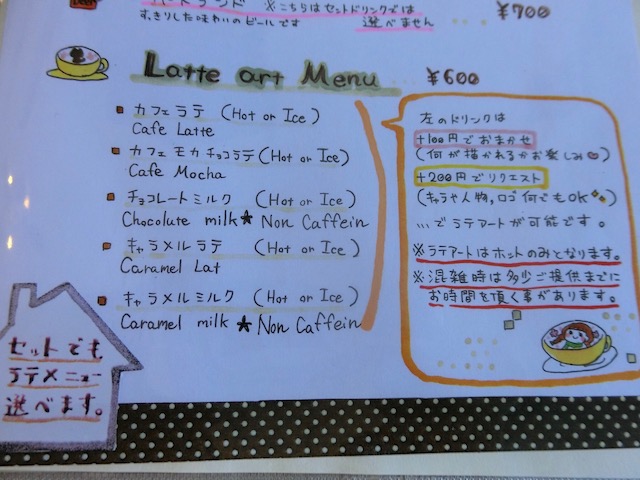 ※こちらはセットドリンクでは
すっきりした味わいのビールです 選べません ¥700
Latte art Menu ¥600
カフェラテ (Hot or Ice)
Cafe Latte
カフェモカチョコラテ(Hot or Ice)
Cafe Mocha
チョコレートミルク (Hot or Ice)
Chocolate milk★Non Caffein
キャラメルラテ (Hot or Ice)
Caramel Lat
キャラメルミルク (Hot or Ice)
Caramel milk★Non Caffein
左のドリンクは
+100円でおまかせ
(何が描かれるかお楽しみ)
+200円でリクエスト
(キャラや人物,ロゴ何でもOK)
...でラテアートが可能です。
※ラテアートはホットのみとなります。
※混雑時は多少ご提供までに
お時間を頂く事があります。
セットでも
ラテメニュー
選べます。